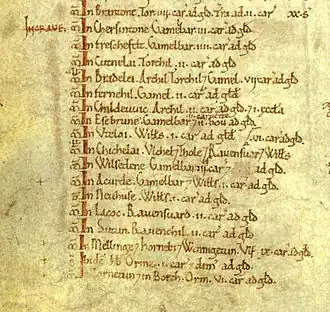 In Brantone. Torf. iii. car ad gld. Tra ad .ii. car xx.s
IN CRAVE. In Chersintone. Gamelbar .iii. car ad gld.
In treschefelt. Gamelbar. iiii. car ad gld.
In Cutnelai. Torchil. ii. car ad gld.
In Bradelei. Archil Torchil 7 Gamel. vii. car ad gld
In fernehil. Gamel. ii. car ad gld.
In Childeuuic. Archil. ii. car ad gld. 7 .i. eccla
In Esebrune. Gamelbar .ii. car 7 .ii. bou ad gld.
In Vtelai. Wills .i. car ad gld
In Chichelai. Vlchel 7 Thole 7 Rauensuar 7 Wills .vi. car ad gld.
In Wilsedene. Gamelbar .iii. car 7 ad gld.
In Acurde. Gamelbar 7 Wills .ii. car ad gld.
In Neuhuse. Wills .i. car ad gld.
In Lacoc. Rauensuard .ii. car ad gld.
In Sutun. Rauenchil .ii. car ad gld.
In Mellinge 7 hornebi 7 Wenningetun. Vlf ix. car ad gld.
hb Orme .i. car 7 dim ad gld.
Tornetun in Borch. Orm. vi. car ad gld.